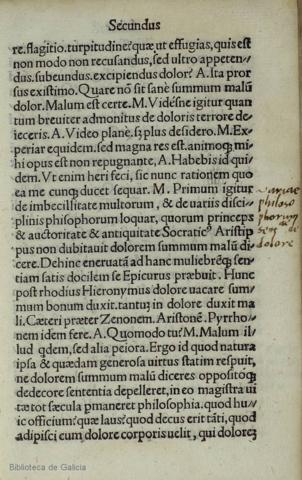 Secundus
re. flagitio. turpitudine? quæ ut effugias, quis est
non modo non recusandus, sed ultro appeten/
dus. subeundus. excipiendus dolor? A. Ita pror
sus existimo. Quare nõ sit sanè summum malũ
dolor. Malum est certe. M. Vidésne igitur quan
tum breuiter admonitus de doloris terrore de/
ieceris. A. Video planè. sꝫ plus desidero. M. Ex/
periar equidem. sed magna res est. animoqꝫ mi/
hi opus est non repugnante, A. Habebis id qui/
dem. Vt enim heri feci, sic nunc rationem quo
ea me cunqꝫ ducet sequar. M. Primum igitur
de imbecillitate multorum, & de uariis disci/
plinis phisophorum loquar, quorum princeps
& auctoritate & antiquitate Socraticꝰ Aristip
pus non dubitauit dolorem summum malũ di/
cere. Dehinc eneruatã ad hanc muliebrẽqꝫ sen/
tiam satis docilem se Epicurus præbuit. Hunc
post rhodius Hieronymus dolore uacare sum/
mum bonum duxit. tantum in dolore duxit ma
li. Cæteri præter Zenonem. Aristonẽ. Pyrrho/
nem idem fere. A. Quomodo tu? M. Malum il/
lud qdem, sed alia peiora. Ergo id quod natura
ipsa & quædam generosa uirtus statim respuit,
ne dolorem summum malũ diceres oppositoqꝫ
dedecore sententia depelleret, in eo magistra ui
tæ tot sæcula pmaneret philosophia. quod hu/
ic officium? quæ laus? quod decus erit tãti, quod
adipisci cum dolore corporis uelit, qui dolorẽ
variae
philoso
phorum
sen de
dolore
Biblioteca de Galicia